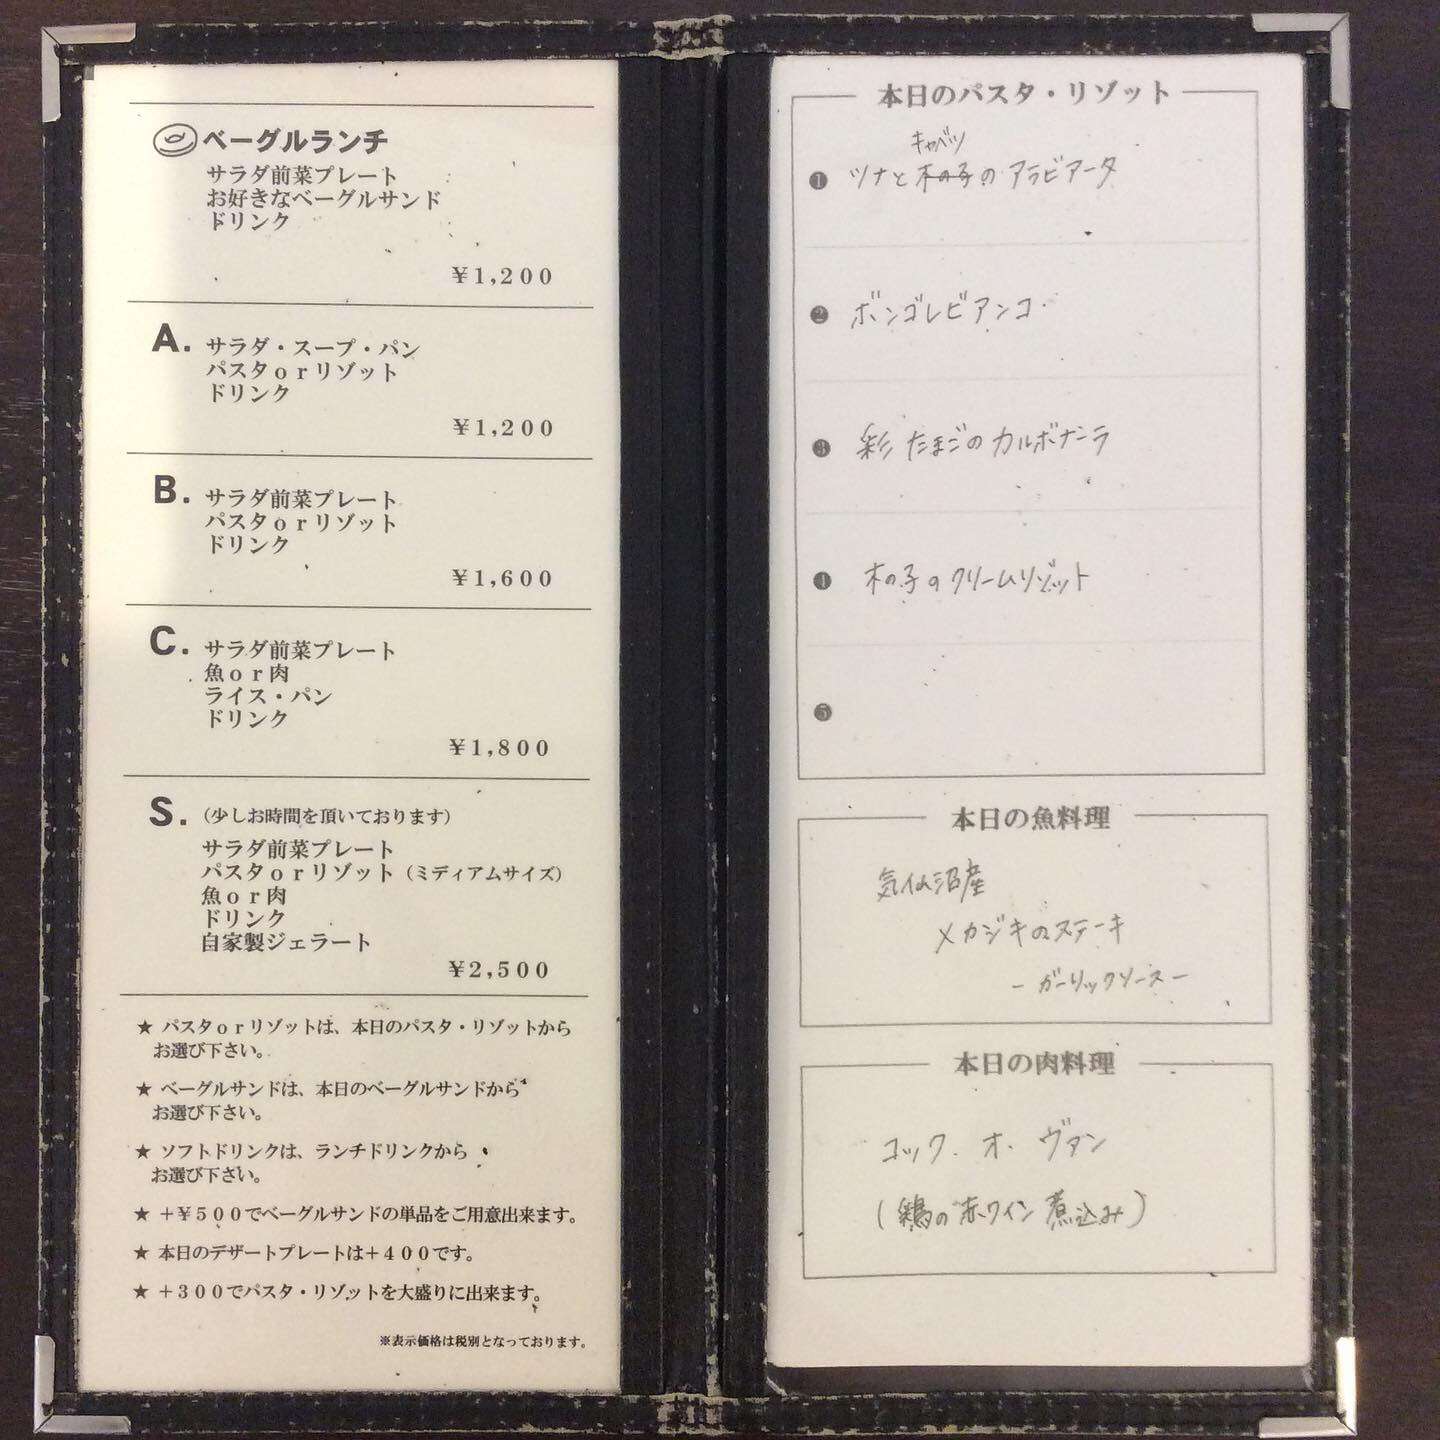 ベーグルランチ
サラダ前菜プレート
お好きなベーグルサンド
ドリンク
¥1,200
A.
サラダ・スープ・パン
パスタorリゾット
ドリンク
¥1,200
B.
サラダ前菜プレート
パスタorリゾット
ドリンク
¥1,600
C.
サラダ前菜プレート
魚or肉
ライス・パン
ドリンク
¥1,800
S.(少しお時間を頂いております)
サラダ前菜プレート
パスタorリゾット(ミディアムサイズ)
魚or肉
ドリンク
自家製ジェラート
¥2,500
★ パスタorリゾットは、本日のパスタ・リゾットから
お選び下さい。
★ ベーグルサンドは、本日のベーグルサンドから
お選び下さい。
★ ソフトドリンクは、ランチドリンクから
お選び下さい。
★ +¥500でベーグルサンドの単品をご用意出来ます。
★ 本日のデザートプレートは+400です。
★ +300でパスタ・リゾットを大盛りに出来ます。
※表示価格は税別となっております。
本日のパスタ・リゾット
キャベツ
❶ ツナと木の子のアラビアータ
❷ ボンゴレビアンコ
❸ 彩たまごのカルボナーラ
❹ 木の子のクリームリゾット
❺
本日の魚料理
気仙沼産
メカジキのステーキ
-ガーリックソース-
本日の肉料理
コック・オ・ヴァン
(鶏の赤ワイン煮込み)